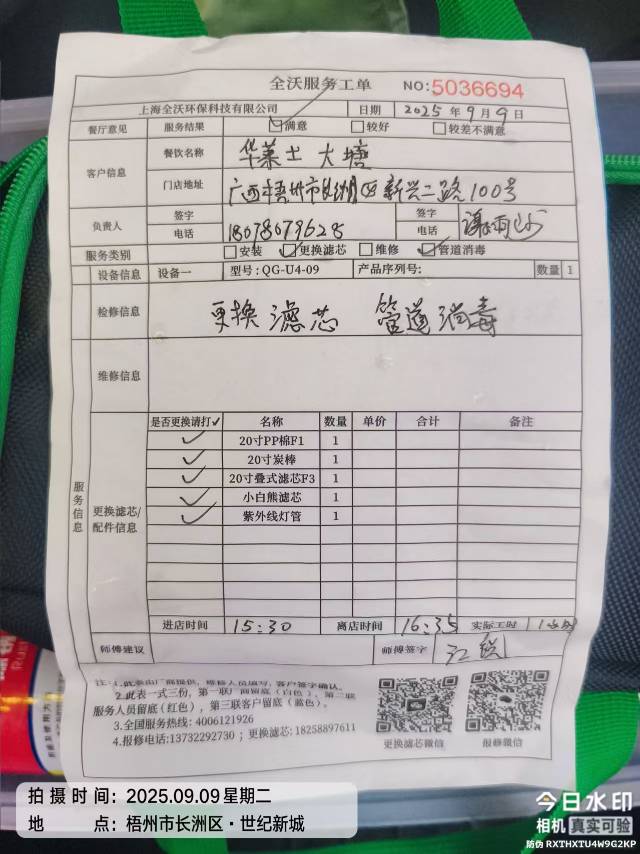 全沃服务工单 NO:5036694
上海全沃环保科技有限公司 日期 2025年9月9日
餐厅意见 服务结果 ☑满意 □较好 □较差不满意
客户信息 餐饮名称 华莱士 大塘
门店地址 广西梧州市长洲区新兴二路100号
负责人 签字 电话 18078079628 签字 电话
服务类别 □安装 ☑更换滤芯 □维修 ☑管道消毒
设备信息 设备一 型号:QG-U4-09 产品序列号: 数量 1
检修信息 更换滤芯 管道消毒
维修信息
服务信息
更换滤芯/配件信息
是否更换请打✓ 名称 数量 单价 合计 备注
✓ 20寸PP棉F1 1
✓ 20寸炭棒 1
✓ 20寸叠式滤芯F3 1
✓ 小白熊滤芯 1
✓ 紫外线灯管 1
进店时间 15:30 离店时间 16:35 实际工时
师傅建议 师傅签字 江锐
注:1.此表由厂商提供,维修人员填写,客户签字确认。
2.此表一式三份,第一联厂商留底(白色),第二联
服务人员留底(红色),第三联客户留底(蓝色)。
3.全国服务热线:4006121926
4.报修电话:13732292730;更换滤芯:18258897611
更换滤芯微信 报修微信
拍摄时间:2025.09.09 星期二
地点:梧州市长洲区·世纪新城
今日水印
相机 真实可验
防伪 RXTHXTU4W9G2KP